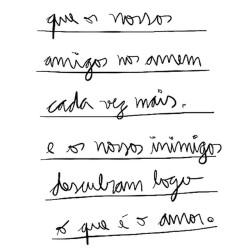 que os nossos
amigos nos amem
cada vez mais.
e os nossos inimigos
descubram logo
o que é o amor.